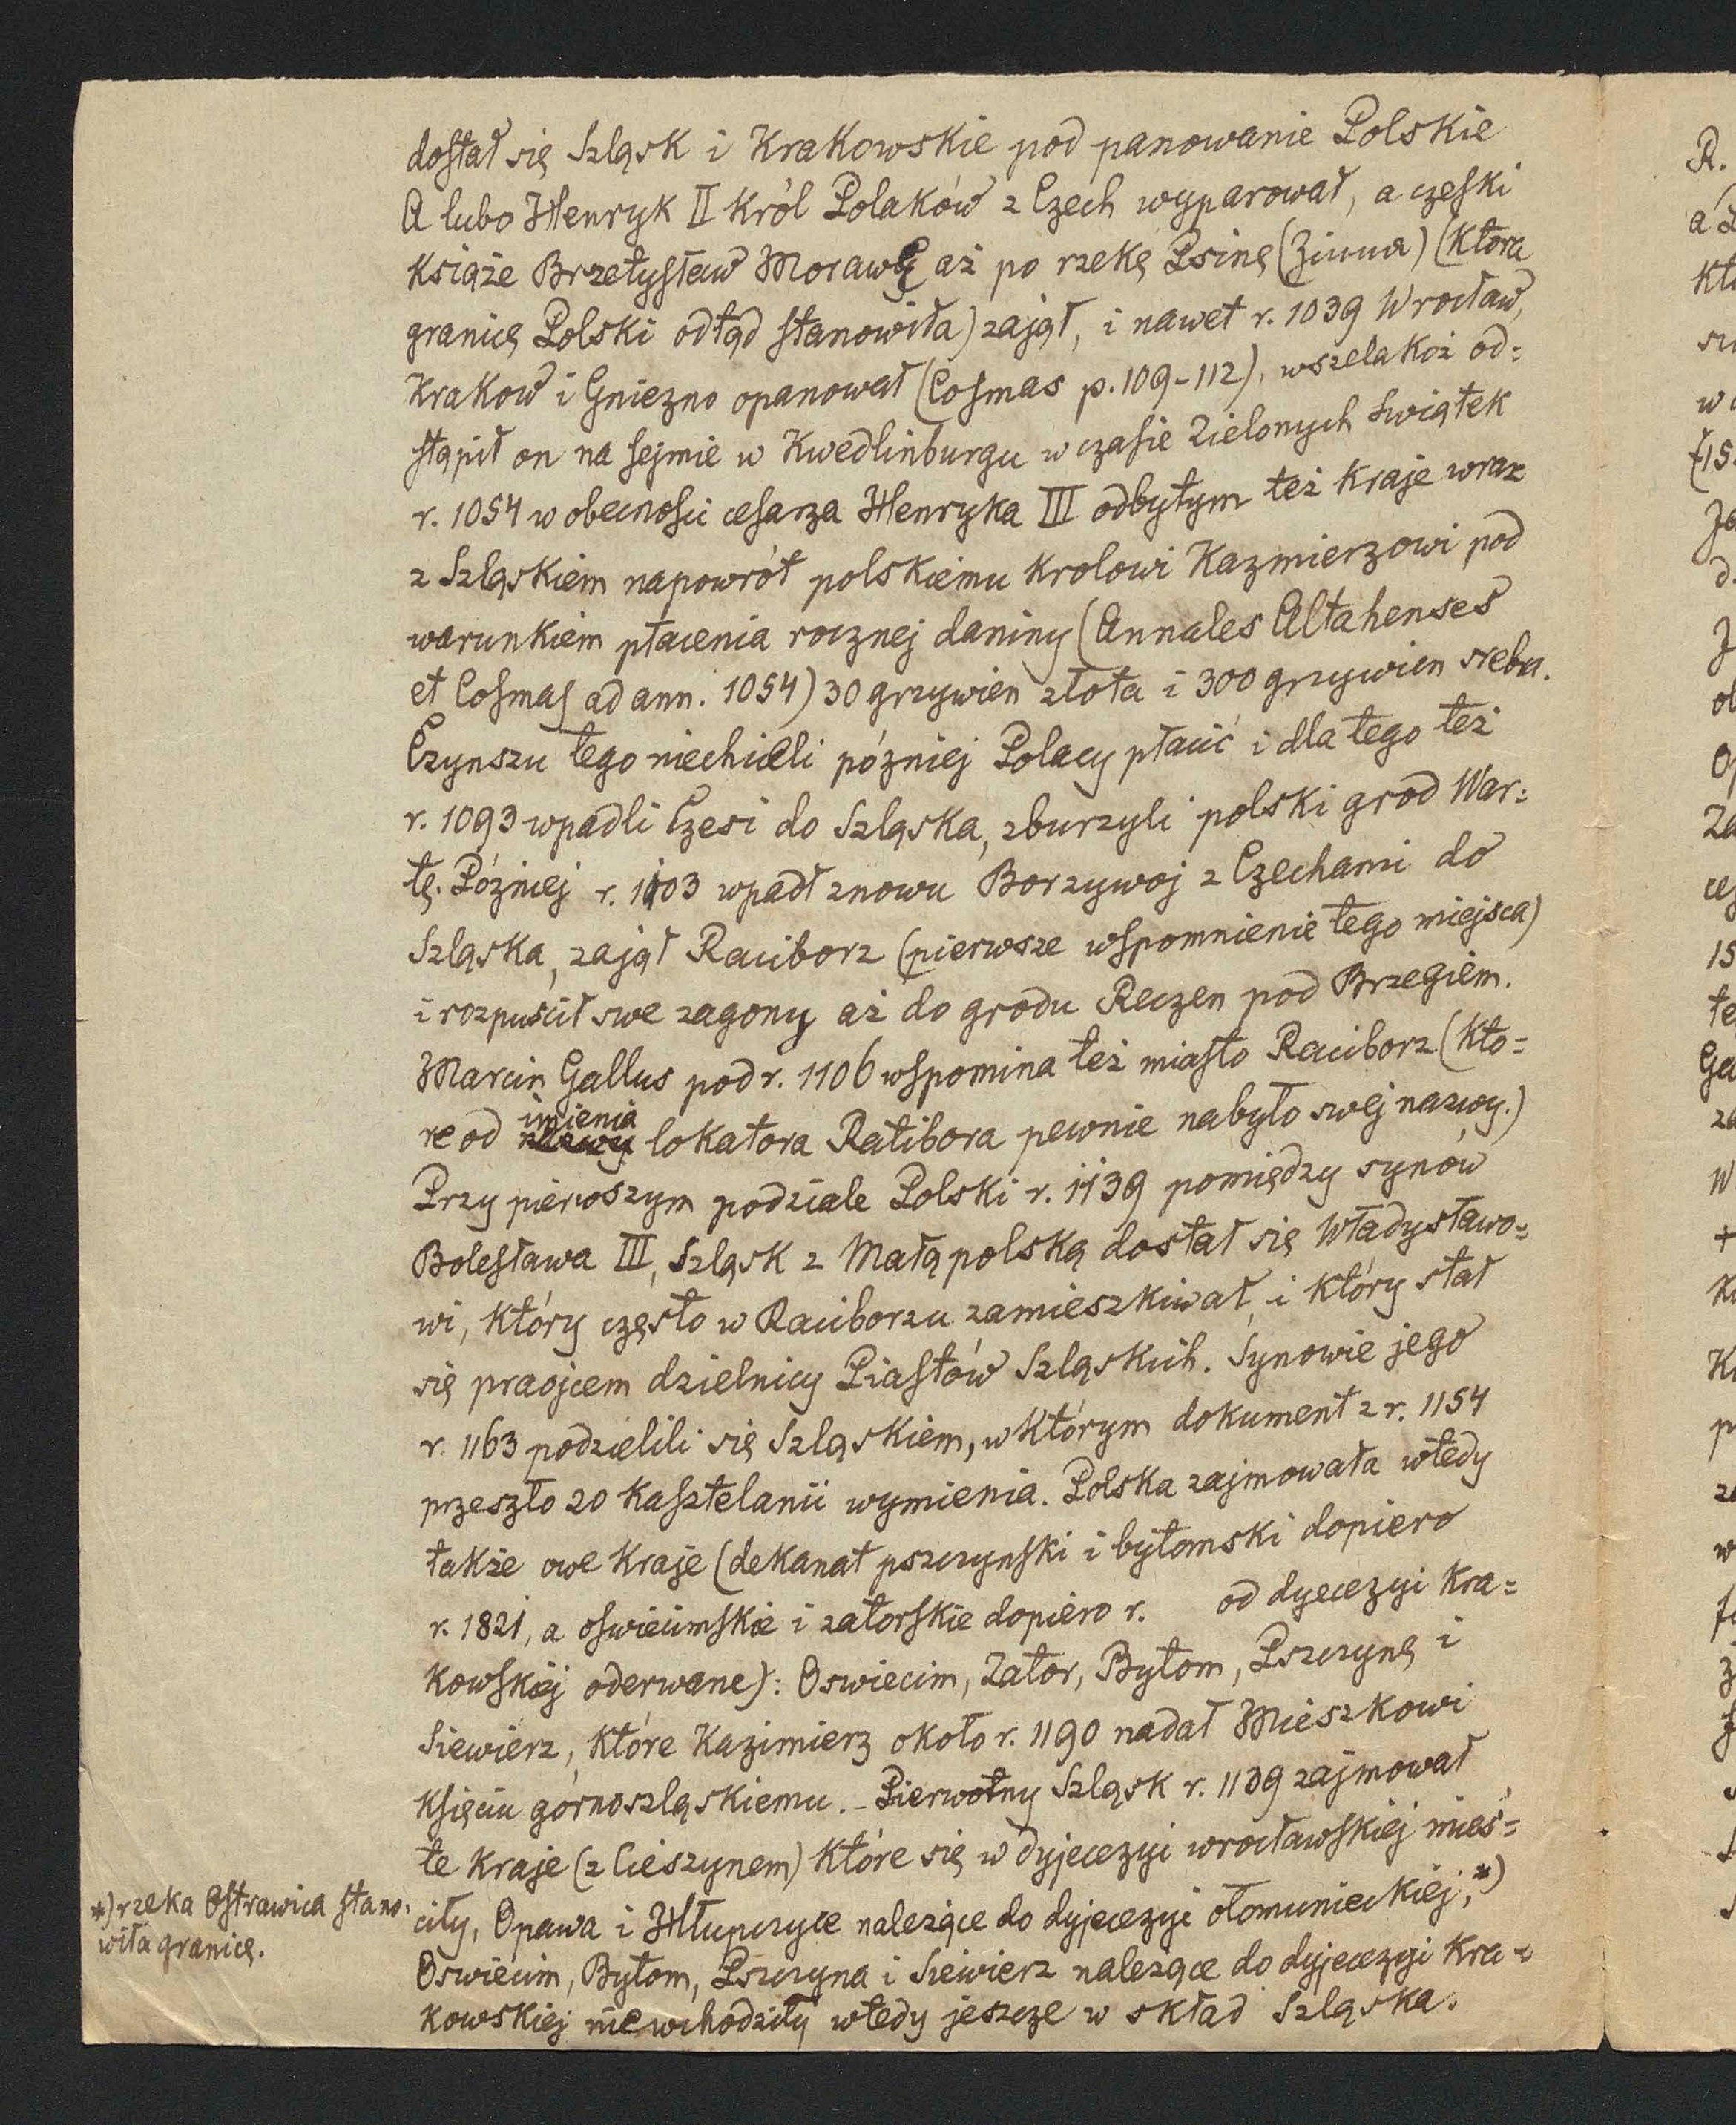 dostał się Szląsk i Krakowskie pod panowanie Polskie
A lubo Henryk II król Polaków z Czech wyparował, a czeski
książe Brzetysław Morawę aż po rzekę Psinę (Zinna) (która
granicę Polski odtąd stanowiła) zajął, i nawet r. 1039 Wrocław,
Krakow i Gniezno opanował (Cosmas p. 109-112), wszelakoż od=
stąpił on na sejmie w Kwedlinburgu w czasie Zielonych Swiątek
r. 1054 w obecnosci cesarza Henryka III odbytym też kraje wraz
z Szląskiem napowrót polskiemu krolowi Kazmierzowi pod
warunkiem płacenia rocznej daniny (Annales Altahenses
et Cosmas ad ann. 1054) 30 grzywien złota i 300 grzywien srebra.
Czynszu tego niechcieli pózniej Polacy płacić i dla tego też
r. 1093 wpadli Czesi do Szląska, zburzyli polski grod War=
tę. Pózniej r. 1103 wpadł znowu Borzywoj z Czechami do
Szląska, zajął Racibórz (pierwsze wspomnienie tego miejsca)
i rozpuścił swe zagony aż do grodu Reczen pod Brzegiem.
Marcin Gallus pod r. 1106 wspomina też miasto Raciborz (kto=
re od imienia lokatora Ratibora pewnie nabyło swej nazwy.)
Przy pierwszym podziale Polski r. 1139 pomiędzy synów
Bolesława III, Szląsk z Małąpolską dostał się Władysławo=
wi, który często w Raciborzu zamieszkiwał, i który stał
się praojcem dzielnicy Piastów Szląskich. Synowie jego
r. 1163 podzielili się Szląskiem, w którym dokument z r. 1154
przeszło 20 kasztelanii wymienia. Polska zajmowała wtedy
także owe kraje (dekanat pszczynski i bytomski dopiero
r. 1821, a oswiecimskie i zatorskie dopiero r. od dyecezyi Kra=
kowskiéj oderwane): Oswiecim, Zator, Bytom, Pszczynę i
Siewierz, które Kazimierz około r. 1190 nadał Mieszkowi
Księciu górnoszląskiemu. - Pierwotny Szląsk r. 1139 zajmował
te kraje (z Cieszynem) które się w dyjecezyi wrocławskiéj mieś=
ciły, Opawa i Hłupczyce należące do dyjecezyi ołomunieckiéj, *)
Oswiecim, Bytom, Pszczyna i Siewierz należące do dyjecezyi Kra=
kowskiej nie wchodziły wtedy jeszcze w skład Szląska.
*) rzeka Ostrawica stano=
wiła granicę.